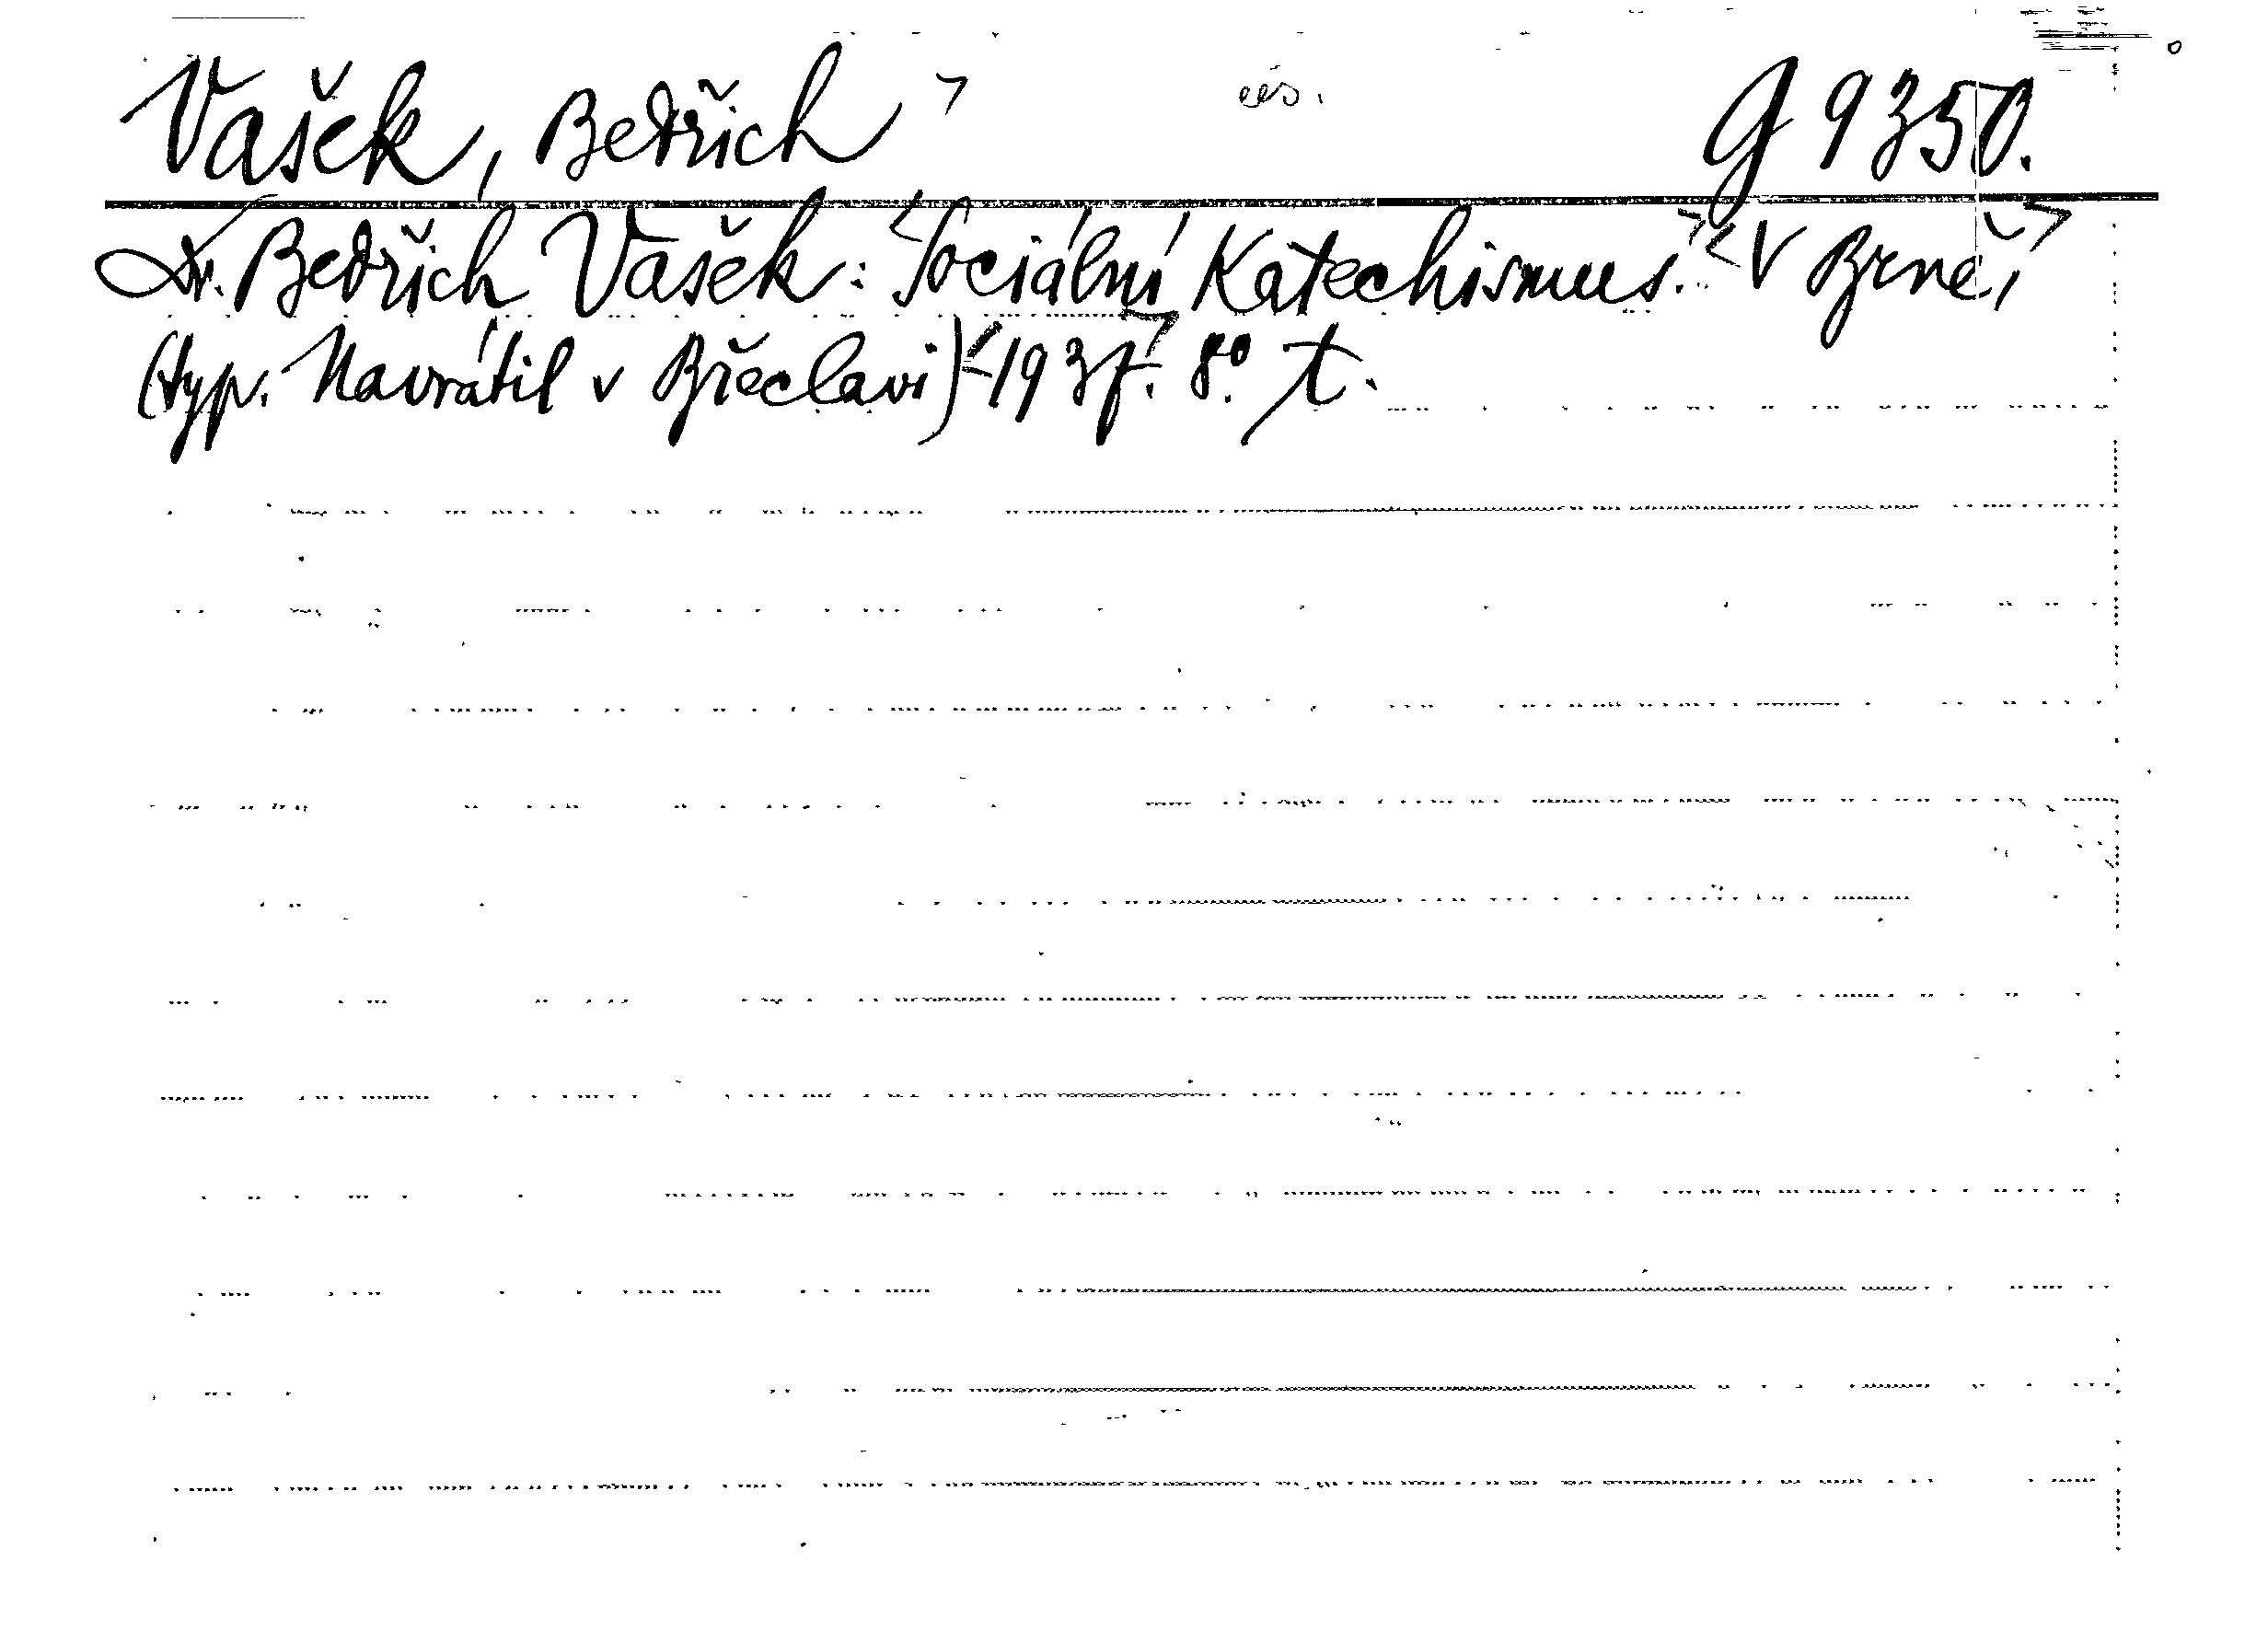 Vašek, Bedřich čes. G 9350.
Dr. Bedřich Vašek: Sociální Katechismus. V Brně,
(typ. Navrátil v Břeclavi) 1937. 8º. t.